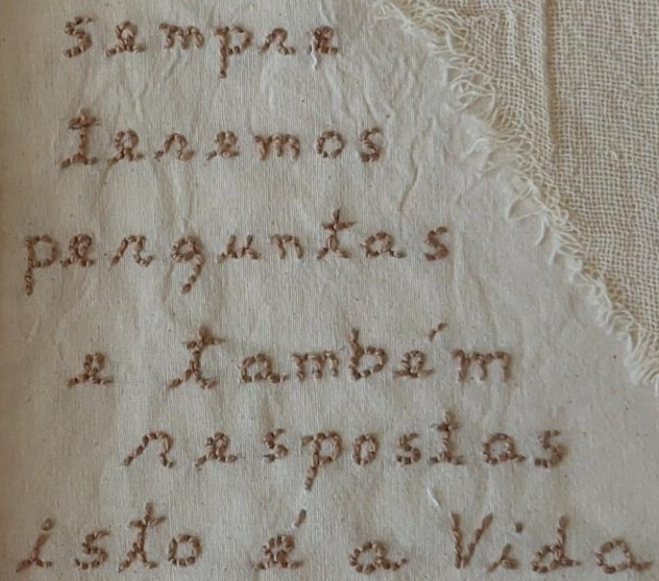 sempre
teremos
perguntas
e também
respostas
isto é a Vida